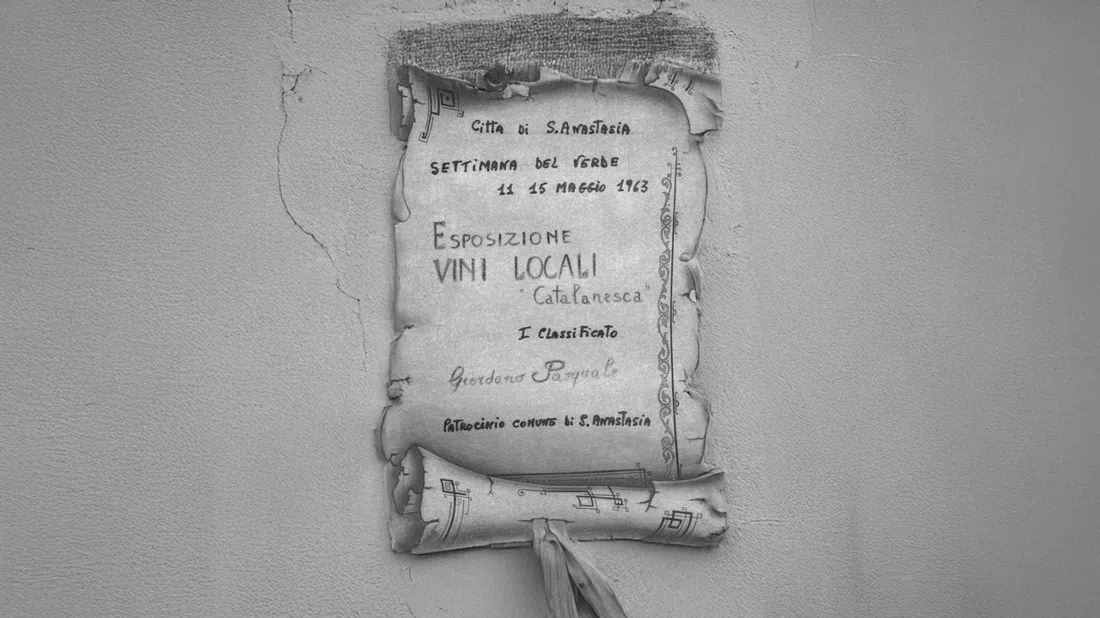 Citta di S.Anastasia
SETTIMANA DEL VERDE
11 15 MAGGIO 1963
ESPOSIZIONE
VINI LOCALI
"Catalanesca"
I CLASSIFICATO
Giordano Pasquale
PATROCINIO COMUNE di S. ANASTASIA